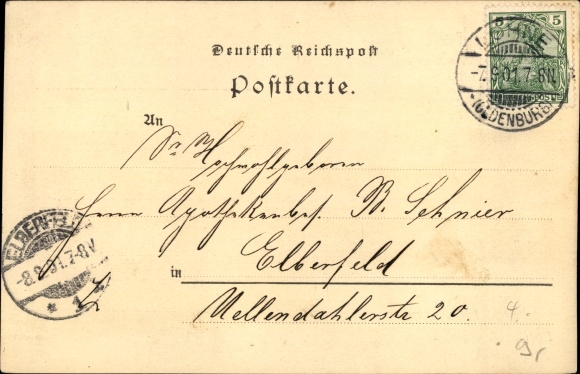 Deutsche Reichspost
Postkarte.
5 5
LOHNE
-7.9.01.7-8N.
*(OLDENBURG)*
An
Sr Hochwohlgeboren
Herrn Apothekenbes. B. Schnier
in Elberfeld
Uellendahlerstr 20.
ELBERFELD
-8.9.01.7-8V
* 1
4.